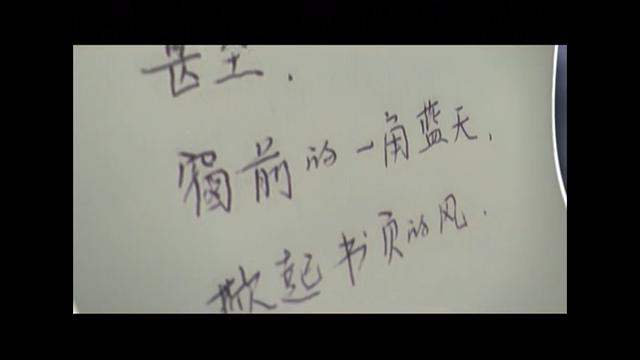 甚至.
窗前的一角蓝天,
掀起书页的风.